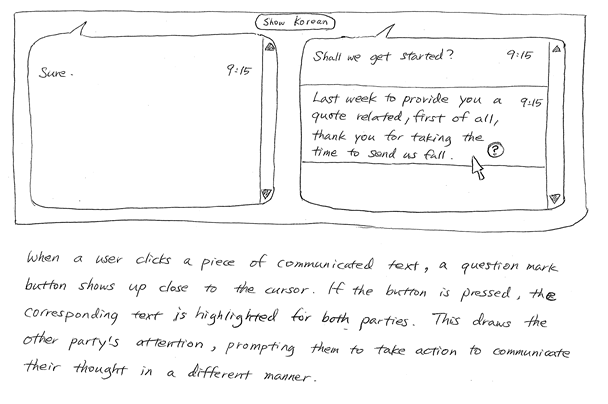 Show Korean
Sure.
9:15
Shall we get started?
9:15
Last week to provide you a
9:15
quote related, first of all,
thank you for taking the
time to send us fall.
?
When a user clicks a piece of communicated text, a question mark
button shows up close to the cursor. If the button is pressed, the
corresponding text is highlighted for both parties. This draws the
other party's attention, prompting them to take action to communicate
their thought in a different manner.